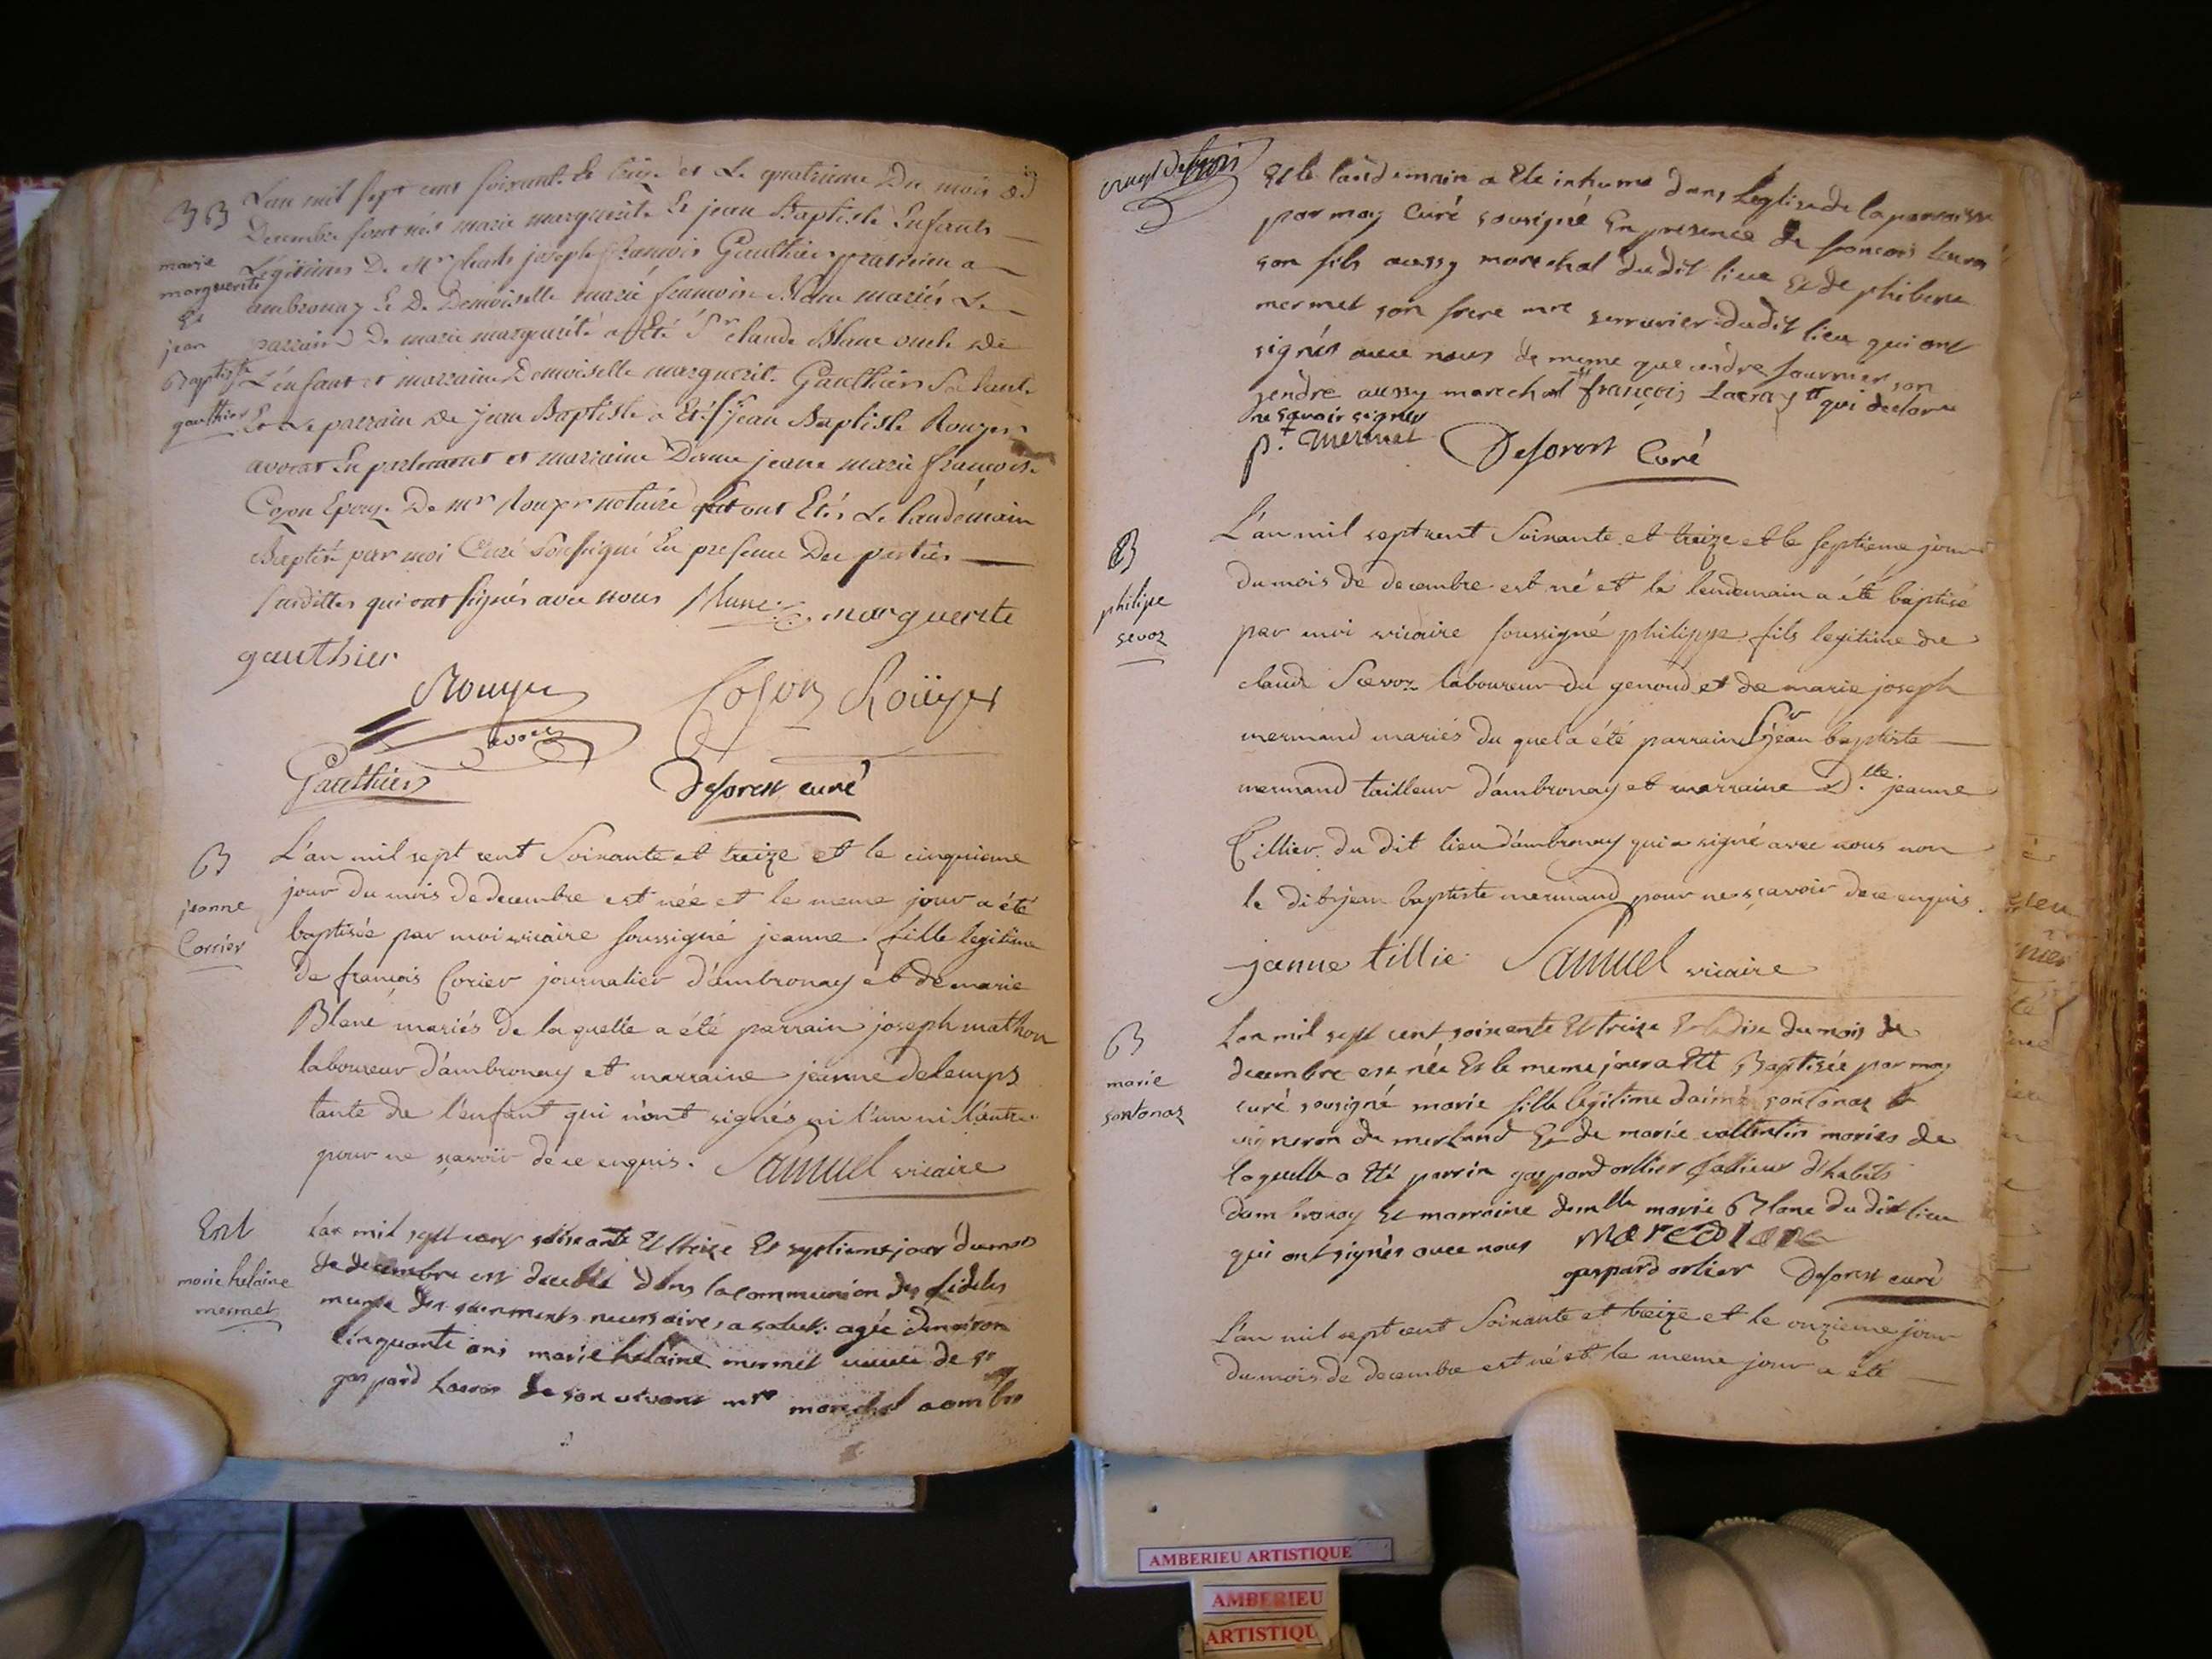 B B
marie
marguerite
Et
jean
Baptiste
gauthier
L'an mil sept cent soixante et treize et Le quatrieme Du mois de
Decembre sont nés marie marguerite Et jean Baptiste Enfants
Légitimes De Mr charle joseph françois Gaulthier praticien a
ambronay Et De Demoiselle marie françoise Blanc mariés Le
parrain De marie marguerite a Eté Sr claude Blanc oncle De
L'enfant et marraine Demoiselle marguerite Gaulthier Sa tante
Et Le parrain de jean Baptiste a Eté Sr jean Baptiste Rouyer
avocat En parlement et marraine Dame jeane marie françoise
Cozon Epouze De Mr Rouyer notaire qui ont Etés Le landemain
Baptisé par moi Curé Soussigné En presence Des parties
susdittes qui ont signés avec nous Blanc marguerite
gauthier
Rouyer Cozon Roüyer
avocat
Gaulthier Deforest curé
B
jeanne
Corrier
L'an mil sept cent Soixante et treize et le cinquieme
jour du mois de decembre est née et le meme jour a été
baptisée par moi vicaire soussigné jeanne fille legitime
de françois Corier journalier d'ambronay et de marie
Blanc mariés de laquelle a été parrain joseph mathon
laboureur d'ambronay et marraine jeanne delemps
tante de l'enfant qui n'ont signés ni l'un ni l'autre
pour ne sçavoir de ce enquis. Samuel vicaire
Ent
marie helaine
mermet
Lan mil sept cent soixante Et treize Et septieme jour du mois
de decembre est decedée dans la communion des fideles
munie des sacrements necessaires a salut agée denviron
cinquante ans marie helaine mermet veuve de sr
gaspard Lacras de son vivant mre marechal a ambro
vingt de trois
Et le landemain a Ete inhumé dans Leglise de la paroisse
par moy Curé sousigné En presence de francois Lacras
son fils aussy marechal dudit lieu Et de philibert
mermet son frere mre serrurier dudit lieu qui ont
signés avec nous de meme que andre fournier son
gendre aussy marechal françois Lacras qui declare
ne sçavoir signer
p. mermet Deforest Curé
B
philipe
sevoz
L'an mil sept cent Soixante et treize et le septieme jour
du mois de decembre est né et le lendemain a été baptisé
par moi vicaire soussigné philippe fils legitime de
claude Scevoz laboureur du genoud et de marie joseph
mermand mariés du quel a été parrain Sr jean baptiste
mermand tailleur d'ambronay et marraine D.lle jeanne
Tillier du dit lieu d'ambronay qui a signé avec nous non
le dit jean baptiste mermand pour ne sçavoir de ce enquis.
jeanne tillie Samuel vicaire
B
marie
santonaz
Lan mil sept cent soixente Et treize Et le dix du mois de
decembre est née Et le meme jour a Eté Baptisée par moy
curé sousigné marie fille legitime d'aimé santonaz
vigneron du merland Et de marie vallentin mariés de
laquelle a Eté parrin gaspard orllier tallieur d'habits
dambronay Et marraine demlle marie Blanc du dit lieu
qui ont signés avec nous
gaspard orlier Deforest curé
L'an mil sept cent Soixante et treize et le onzieme jour
du mois de decembre est né et le meme jour a été
AMBERIEU ARTISTIQUE
AMBERIEU
ARTISTIQU